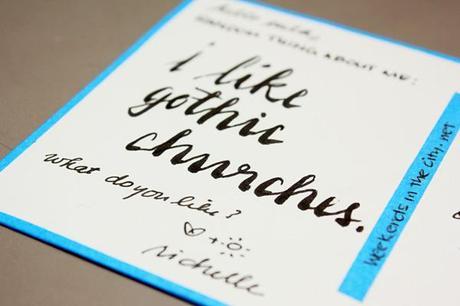 RANDOM THING ABOUT ME:
i like
gothic
churches.
what do you like?
Michelle
weekends in the city.net